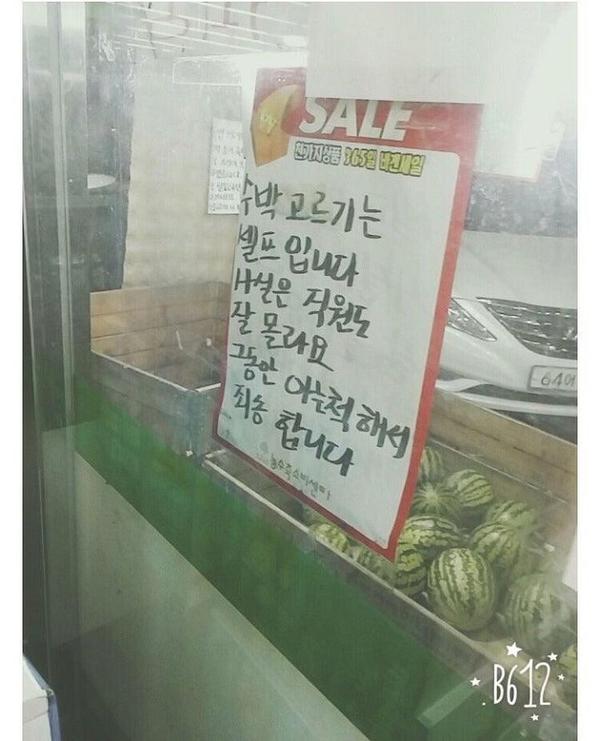 SALE
한가지상품 365일 바겐세일
수박 고르기는
셀프 입니다
사실은 직원도
잘 몰라요
그동안 아는척 해서
죄송 합니다
농수축소비센타
64어
B612